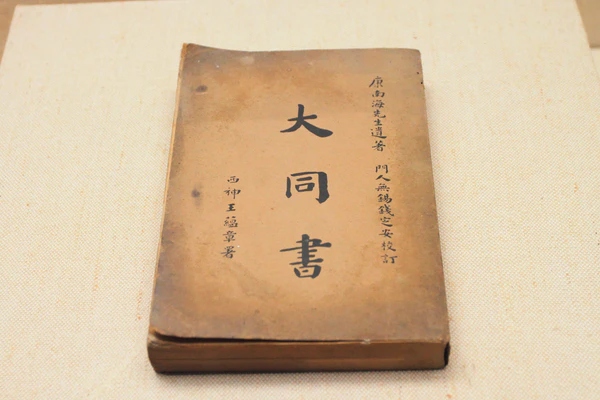 康南海先生遺著 門人無錫錢定安校訂
大同書
西神王蕴章署